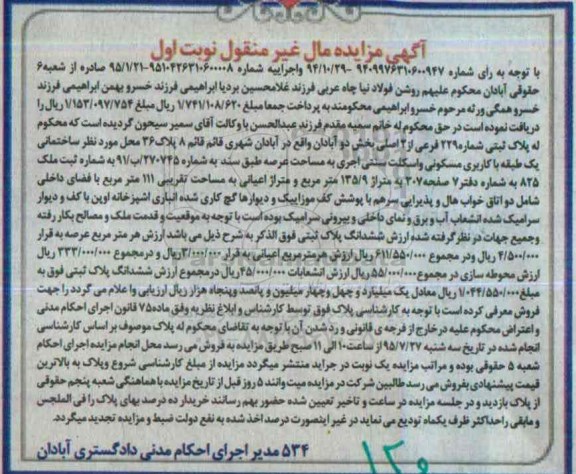 آگهی مزایده مال غیر منقول نوبت اول
با توجه به رای شماره ۹۴۰۹۹۷۶۳۱۰۶۰۰۹۴۷ -۹۴/۱۰/۲۹ واجراییه شماره ۹۵/۱/۲۱-۹۵۱۰۴۲۶۳۱۰۶۰۰۰۰۸ صادره از شعبه۶
حقوقی آبادان محکوم علیهم روشن فولاد نیا چاه عربی فرزند غلامحسین بردیا ابراهیمی فرزند خسرو بهمن ابراهیمی فرزند
خسرو همگی ورثه مرحوم خسرو ابراهیمی محکومند به پرداخت جمعا مبلغ ۱/۷۴۱/۱۰۸/۶۲۰ ریال مبلغ ۱/۱۵۳/۰۹۷/۷۵۴ ریال را
دریافت نموده است در حق محکوم له خانم سنیه مقدم فرزند عبدالحسن با وکالت آقای سمیر سیحون گردیده است که محکوم
له پلاک ثبتی شماره۲۲۹ فرعی از۲ اصلی بخش دو آبادان واقع در آبادان شهری قائم قائم ۸ پلاک۳۶ محل مورد نظر ساختمانی
یک طبقه با کاربری مسکونی واسکلت سنتی آجری به مساحت عرصه طبق سند به شماره ۲۷۰۷۴۵/ب/۹۱ به شماره ثبت ملک
۸۲۵ به شماره دفتر۷ صفحه۲۰۷ به متراژ ۱۳۵/۹ متر مربع و متراژ اعیانی به مساحت تقریبی ۱۱۱ متر مربع با فضای داخلی
شامل دو اتاق خواب هال و پذیرایی سرهم با پوشش کف موزاییک و دیوارها گچ کاری شده انباری آشپزخانه اوپن با کف و دیوار
سرامیک شده انشعاب آب و برق و نمای داخلی و بیرونی سرامیک بوده است با توجه به موقعیت و قدمت ملک و مصالح بکار رفته
وجمیع جهات در نظر گرفته شده ارزش ششدانگ پلاک ثبتی فوق الذکر به شرح ذیل می باشد ارزش هر متر مربع عرصه به قرار
۴/۵۰۰/۰۰۰ ریال ودر مجموع ۶۱۱/۵۵۰/۰۰۰ ریال ارزش هرمتر مربع اعیانی به قرار ۳/۰۰۰/۰۰۰ریال و درمجموع ۳۳۳/۰۰۰/۰۰۰ ریال
ارزش محوطه سازی در مجموع ۵۵/۰۰۰/۰۰۰ریال ارزش انشعابات ۴۵/۰۰۰/۰۰۰ریال درمجموع ارزش ششدانگ پلاک ثبتی فوق به
مبلغ ۱/۰۴۴/۵۵۰/۰۰۰ ریال معادل یک میلیارد و چهل وچهار میلیون و پانصد وپنجاه هزار ریال ارزیابی واعلام می گردد را جهت
فروش معرفی کرده است با توجه به کارشناسی پلاک فوق توسط کارشناس وابلاغ نظریه وفق ماده۷۵ قانون اجرای احکام مدنی
و اعتراض محکوم علیه در خارج از فرجه ی قانونی و رد شدن آن با توجه به تقاضای محکوم له پلاک موصوف بر اساس کارشناسی
انجام شده در تاریخ سه شنبه ۹۵/۷/۲۷ از ساعت۱۰ الی ۱۱ صبح طریق مزایده به فروش می رسد محل انجام مزایده اجرای احکام
شعبه ۵ حقوقی بوده و مراتب مزایده یک نوبت در جراید منتشر میگردد مزایده از مبلغ کارشناسی شروع وپلاک به بالاترین
قیمت پیشنهادی بفروش می رسد طالبین شرکت در مزایده میت وانند ۵ روز قبل از تاریخ مزایده با هماهنگی شعبه پنجم حقوقی
از پلاک بازدید و در جلسه مزایده در ساعت و تاخیر تعیین شده حضور بهم رسانند خریدار ده درصد بهای پلاک را فی المجلس
و مابقی راحداکثر ظرف یکماه تودیع می نماید در غیر اینصورت درصد اخذ شده به نفع دولت ضبط و مزایده تجدید میگردد.
۵۳۴ مدیر اجرای احکام مدنی دادگستری آبادان
۱۲۰